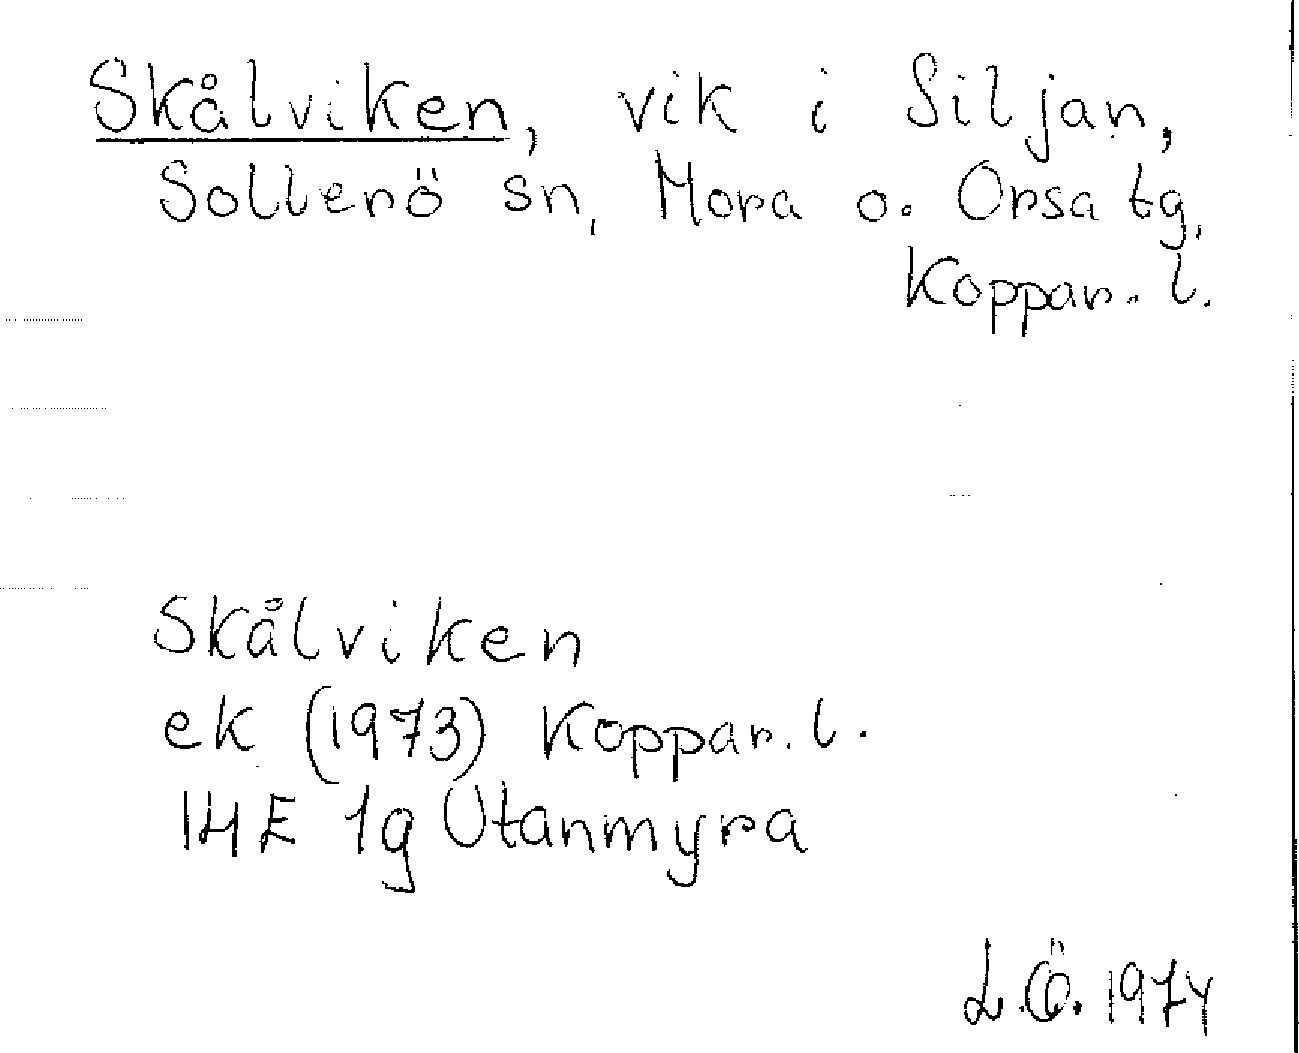 Skålviken, vik i Siljan,
Sollerö sn, Mora o. Orsa tg,
Koppar. l.
Skålviken
ek (1973) Koppar. l.
14E 1g Utanmyra
L.Ö. 1974